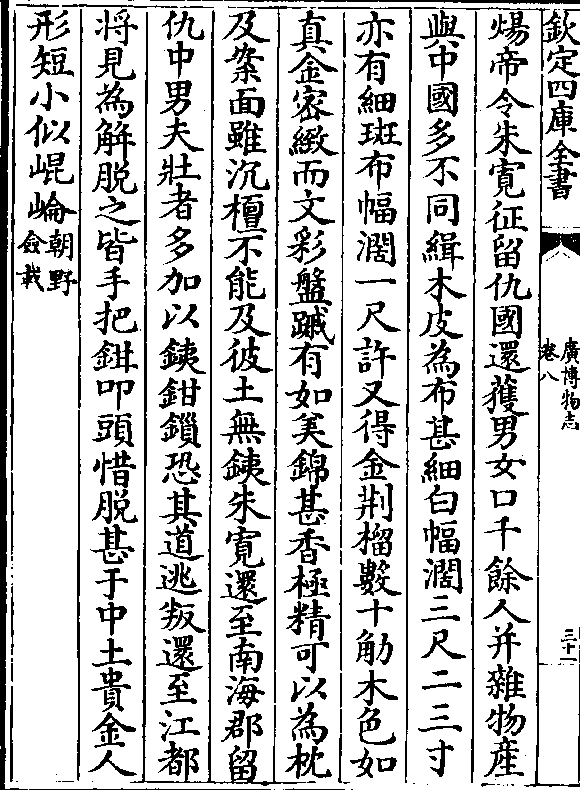 欽定四庫全書
廣博物志
卷八
三十一
煬帝令朱寛征留仇國還獲男女口千餘人并雜物産
與中國多不同緝木皮為布甚細白幅濶三尺二三寸
亦有細斑布幅濶一尺許又得金荆榴數十觔木色如
真金宻緻而文彩盤蹙有如美錦甚香極精可以為枕
及案面雖沉檀不能及彼土無鐵朱寛還至南海郡留
仇中男夫壯者多加以鐵鉗鎖恐其道逃叛還至江都
将見為解脱之皆手把鉗叩頭惜脱甚于中土貴金人
形短小似崐崘朝野
僉載